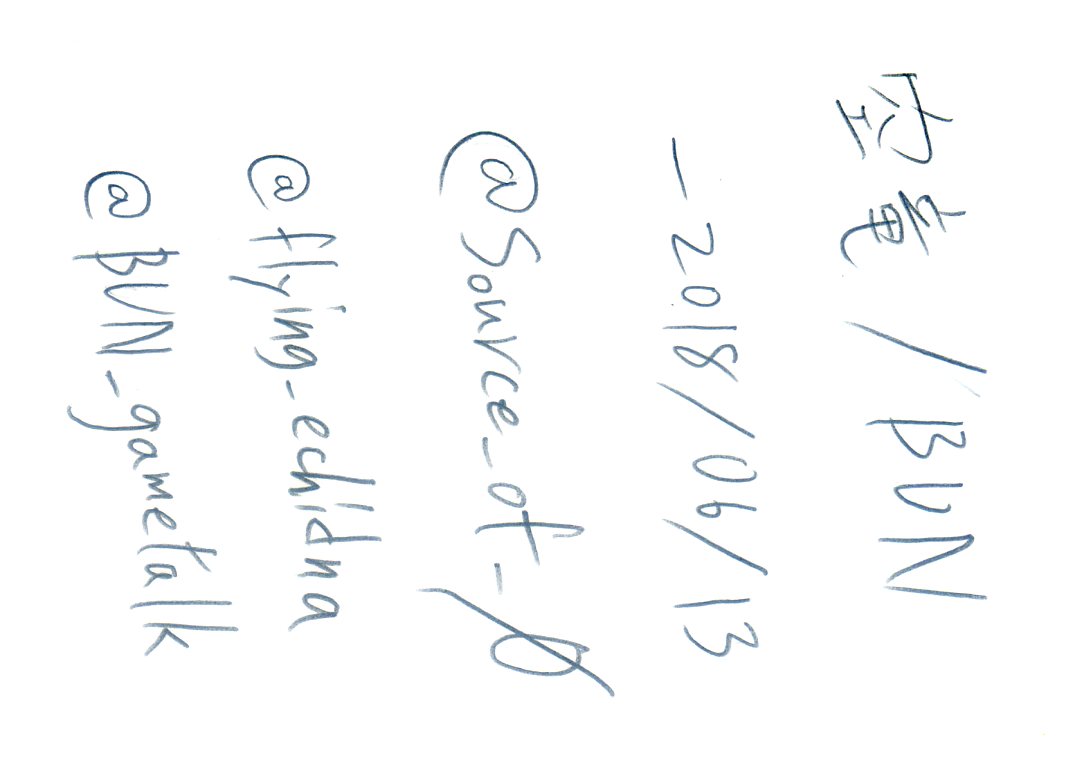 空竜/BUN
_2018/06/13
@Source_of_Ø
@flying_echidna
@BUN_gametalk